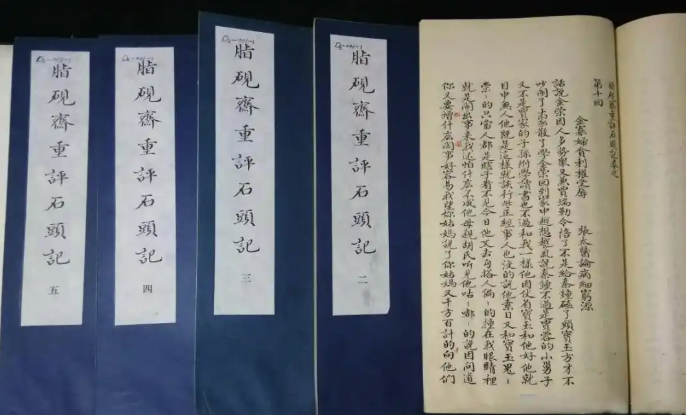 脂硯齋重評石頭記卷之
第十回
金寡婦貪利權受辱　張太醫論病細窮源
話說金榮因人多勢衆又兼賈瑞勒令陪了不是給秦鍾磕了頭寶玉方才不
吵鬧了大家散了學金榮因到家中越想越氣說秦鍾不過是賈蓉的小舅子
又不是賈家的子孫附學讀書也不過和我一樣他因仗有寶玉和他好他就
目中無人他既是這樣就該行些正經事人也没的說他素日又和寶玉鬼〻
祟〻的只當人都是瞎子看不見今日他又去勾搭人偏〻的撞在我眼睛裡
就是鬧出事來我還怕什広不成他母親胡氏听見他咕〻嘟〻的說因問道
你又要增什広閑事好容易我望你姑媽說了你姑媽又千方百計的向他們
脂硯齋重評石頭記 二
脂硯齋重評石頭記 三
脂硯齋重評石頭記 四
脂硯齋重評石頭記 五